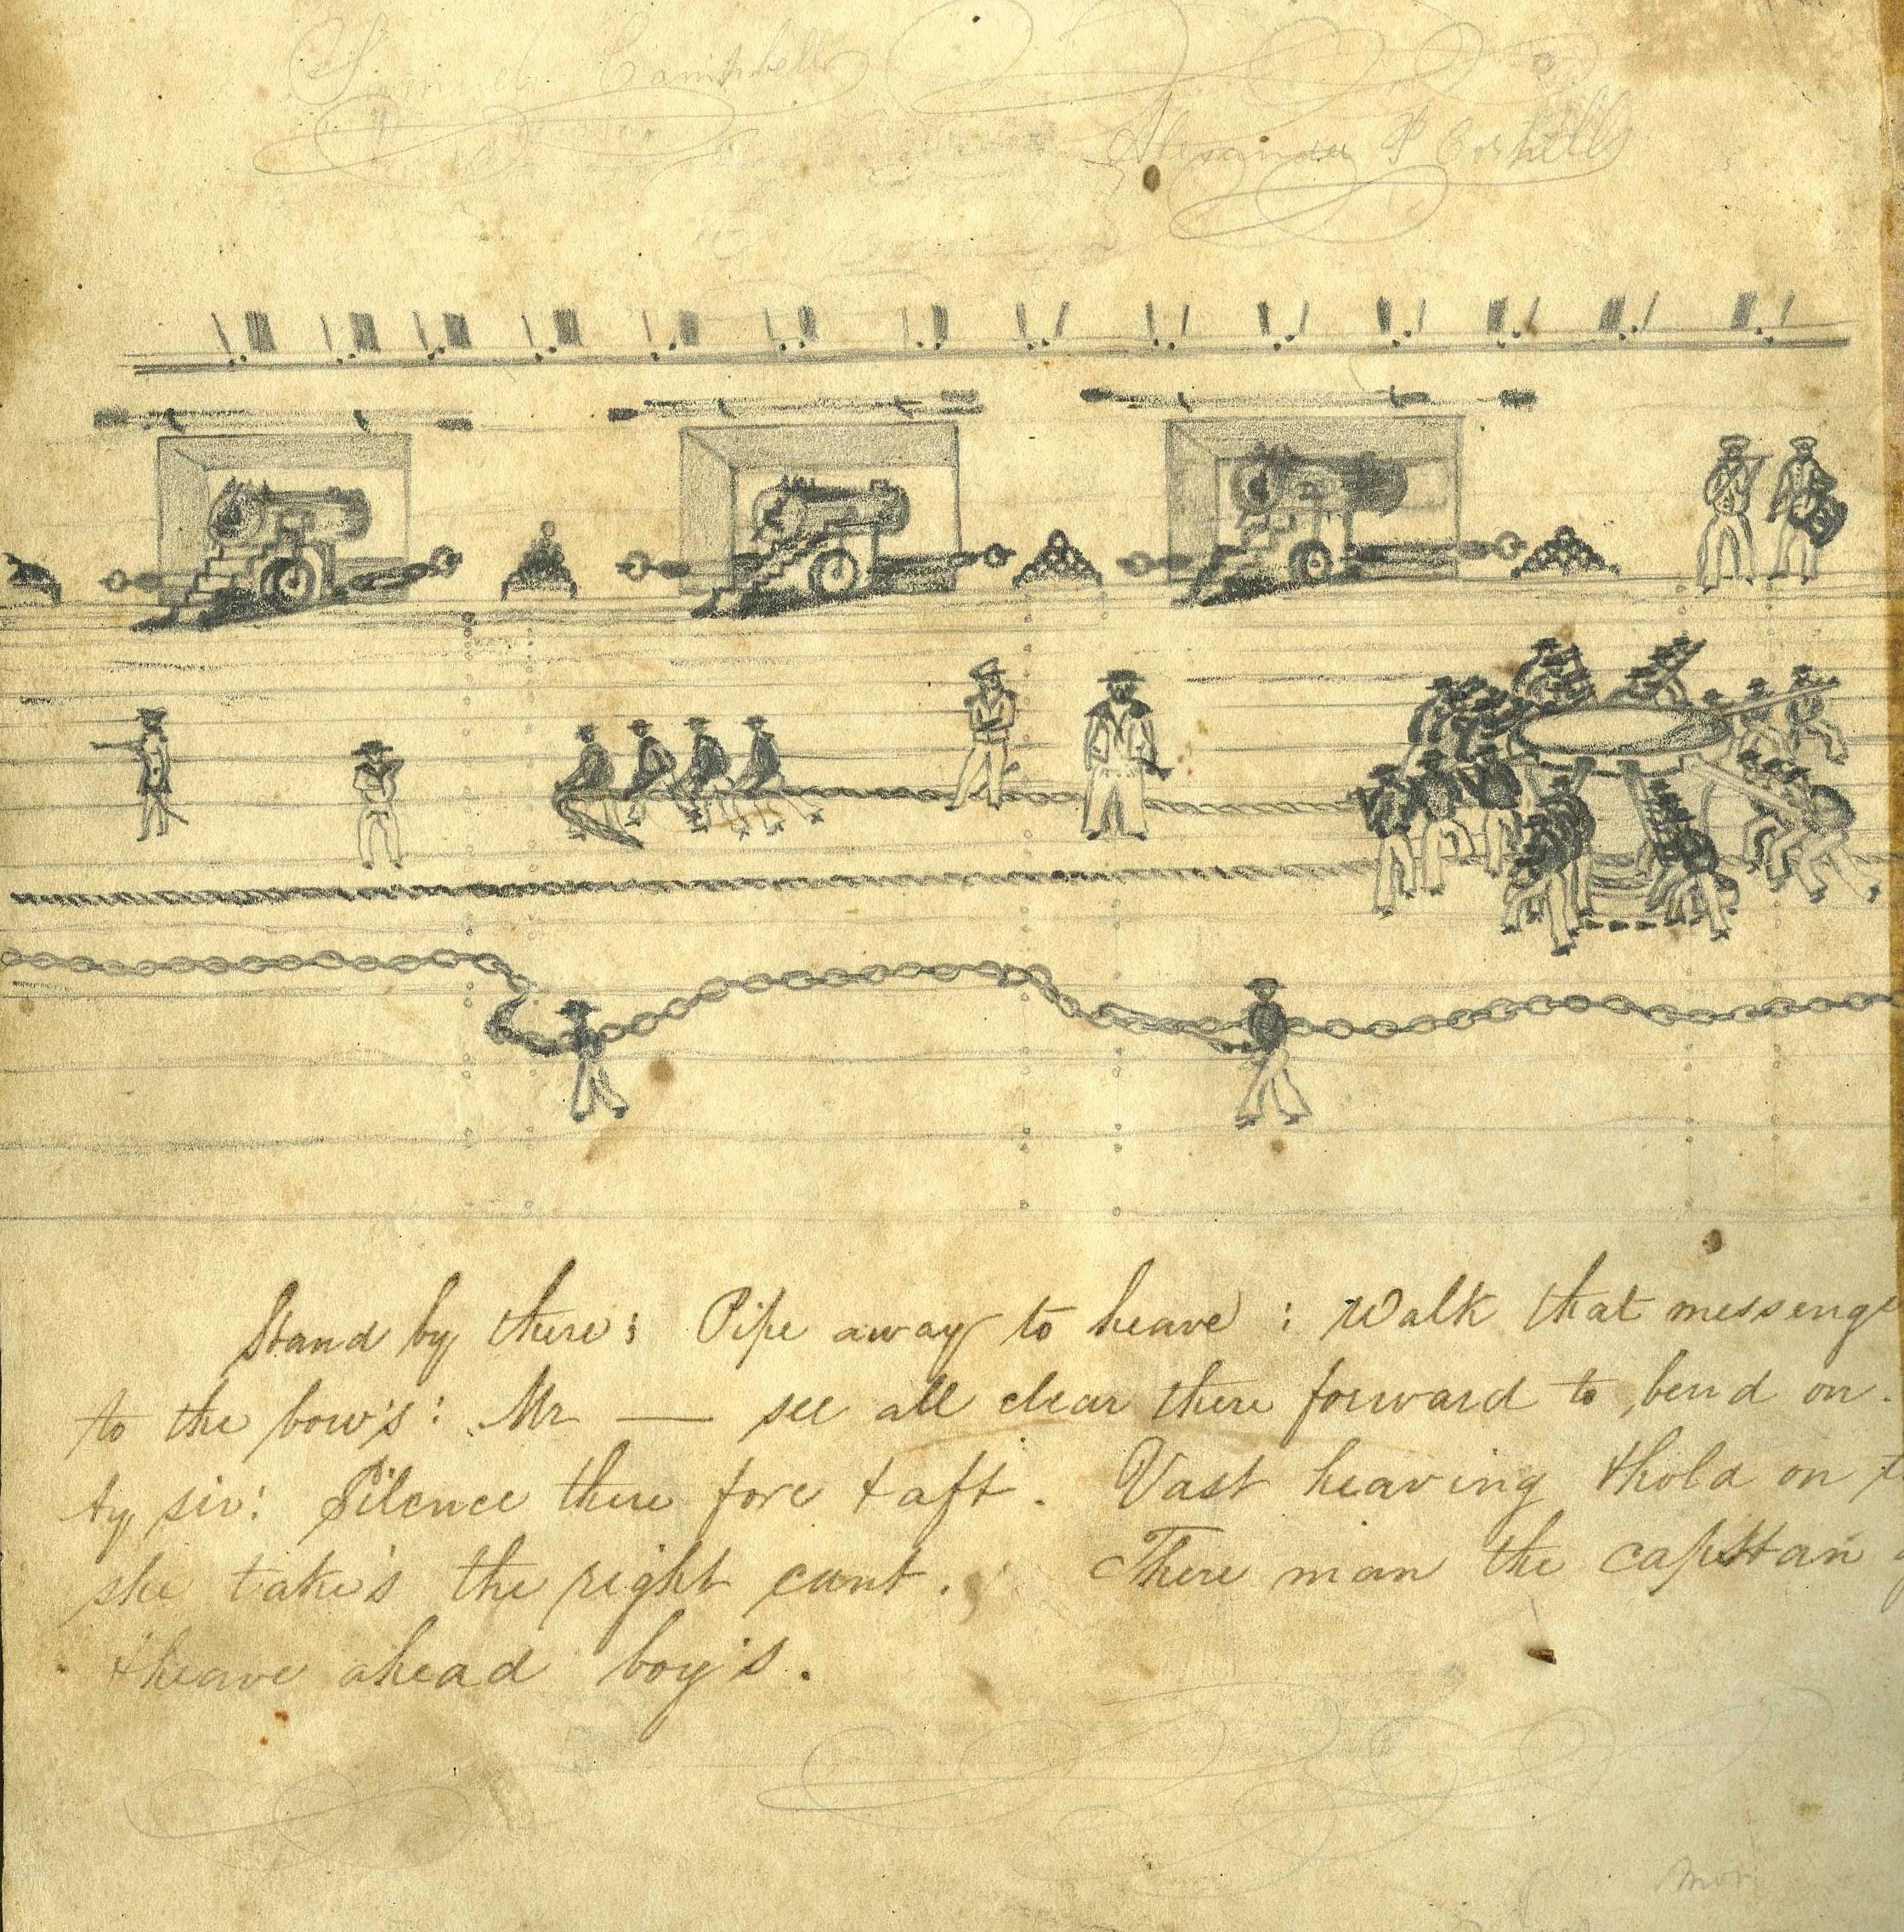 Samuel Campbell
Alexander P
Stand by there; Pipe away to heave : Walk that messeng
to the bow's: Mr — see all clear there forward to bend on.
Ay sir! Silence there fore & aft. Vast heaving & hold on
she take's the right cant. There man the capstan
& heave ahead boy's.